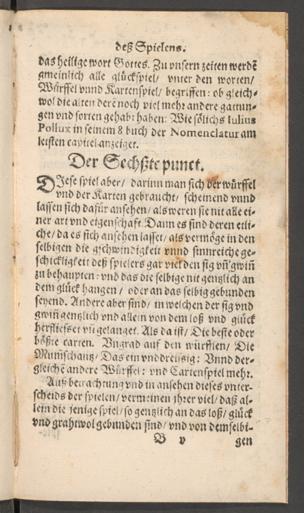 deß Spielens.
das heilige wort Gottes. Zu vnsern zeiten werdē
gmeinlich alle glückspiel/ vnter den worten/
Würffel vnnd Kartenspiel/ begriffen: ob gleich-
wol die alten derē noch viel mehr andere gattun-
gen vnd sorten gehabt haben: Wie sölichs Iulius
Pollux in seinem 8 buch der Nomenclatur am
letsten capitel anzeiget.
Der Sechßte punct.
DIese spiel aber/ darinn man sich der würffel
vnd der Karten gebraucht/ scheinend vnnd
lassen sich dafür ansehen/ als weren sie nit alle ei-
ner art vnd eigenschafft. Dann es sind deren etli-
che/ da es sich ansehen lasset/ als vermöge in den
selbigen die gschwindigkeit vnnd sinnreiche ge-
schickligkeit deß spielers gar viel den sig vn̄ gwiñ
zu behaupten: vnd das die selbige nit gentzlich an
dem glück hangen/ oder an das selbig gebunden
seyend. Andere aber sind/ in welchen der sig vnd
gwiñ gentzlich vnd allein von dem loß vnd glück
herfliesset vn̄ gelanget. Als da ist/ Die beste oder
bößte carten. Vngrad auf den würfflen/ Die
Mummschantz/ Das ein vnd dreissig: Vnnd der-
gleichē andere Würffel: vnd Cartenspiel mehr.
Auß betrachtung vnd in ansehen dieses vnter-
scheids der spielen/ vermeinen ihrer viel/ daß al-
lein die jenige spiel/ so gentzlich an das loß/ glück
vnd grahtwol gebunden sind/ vnd von demselbi-
B v gen